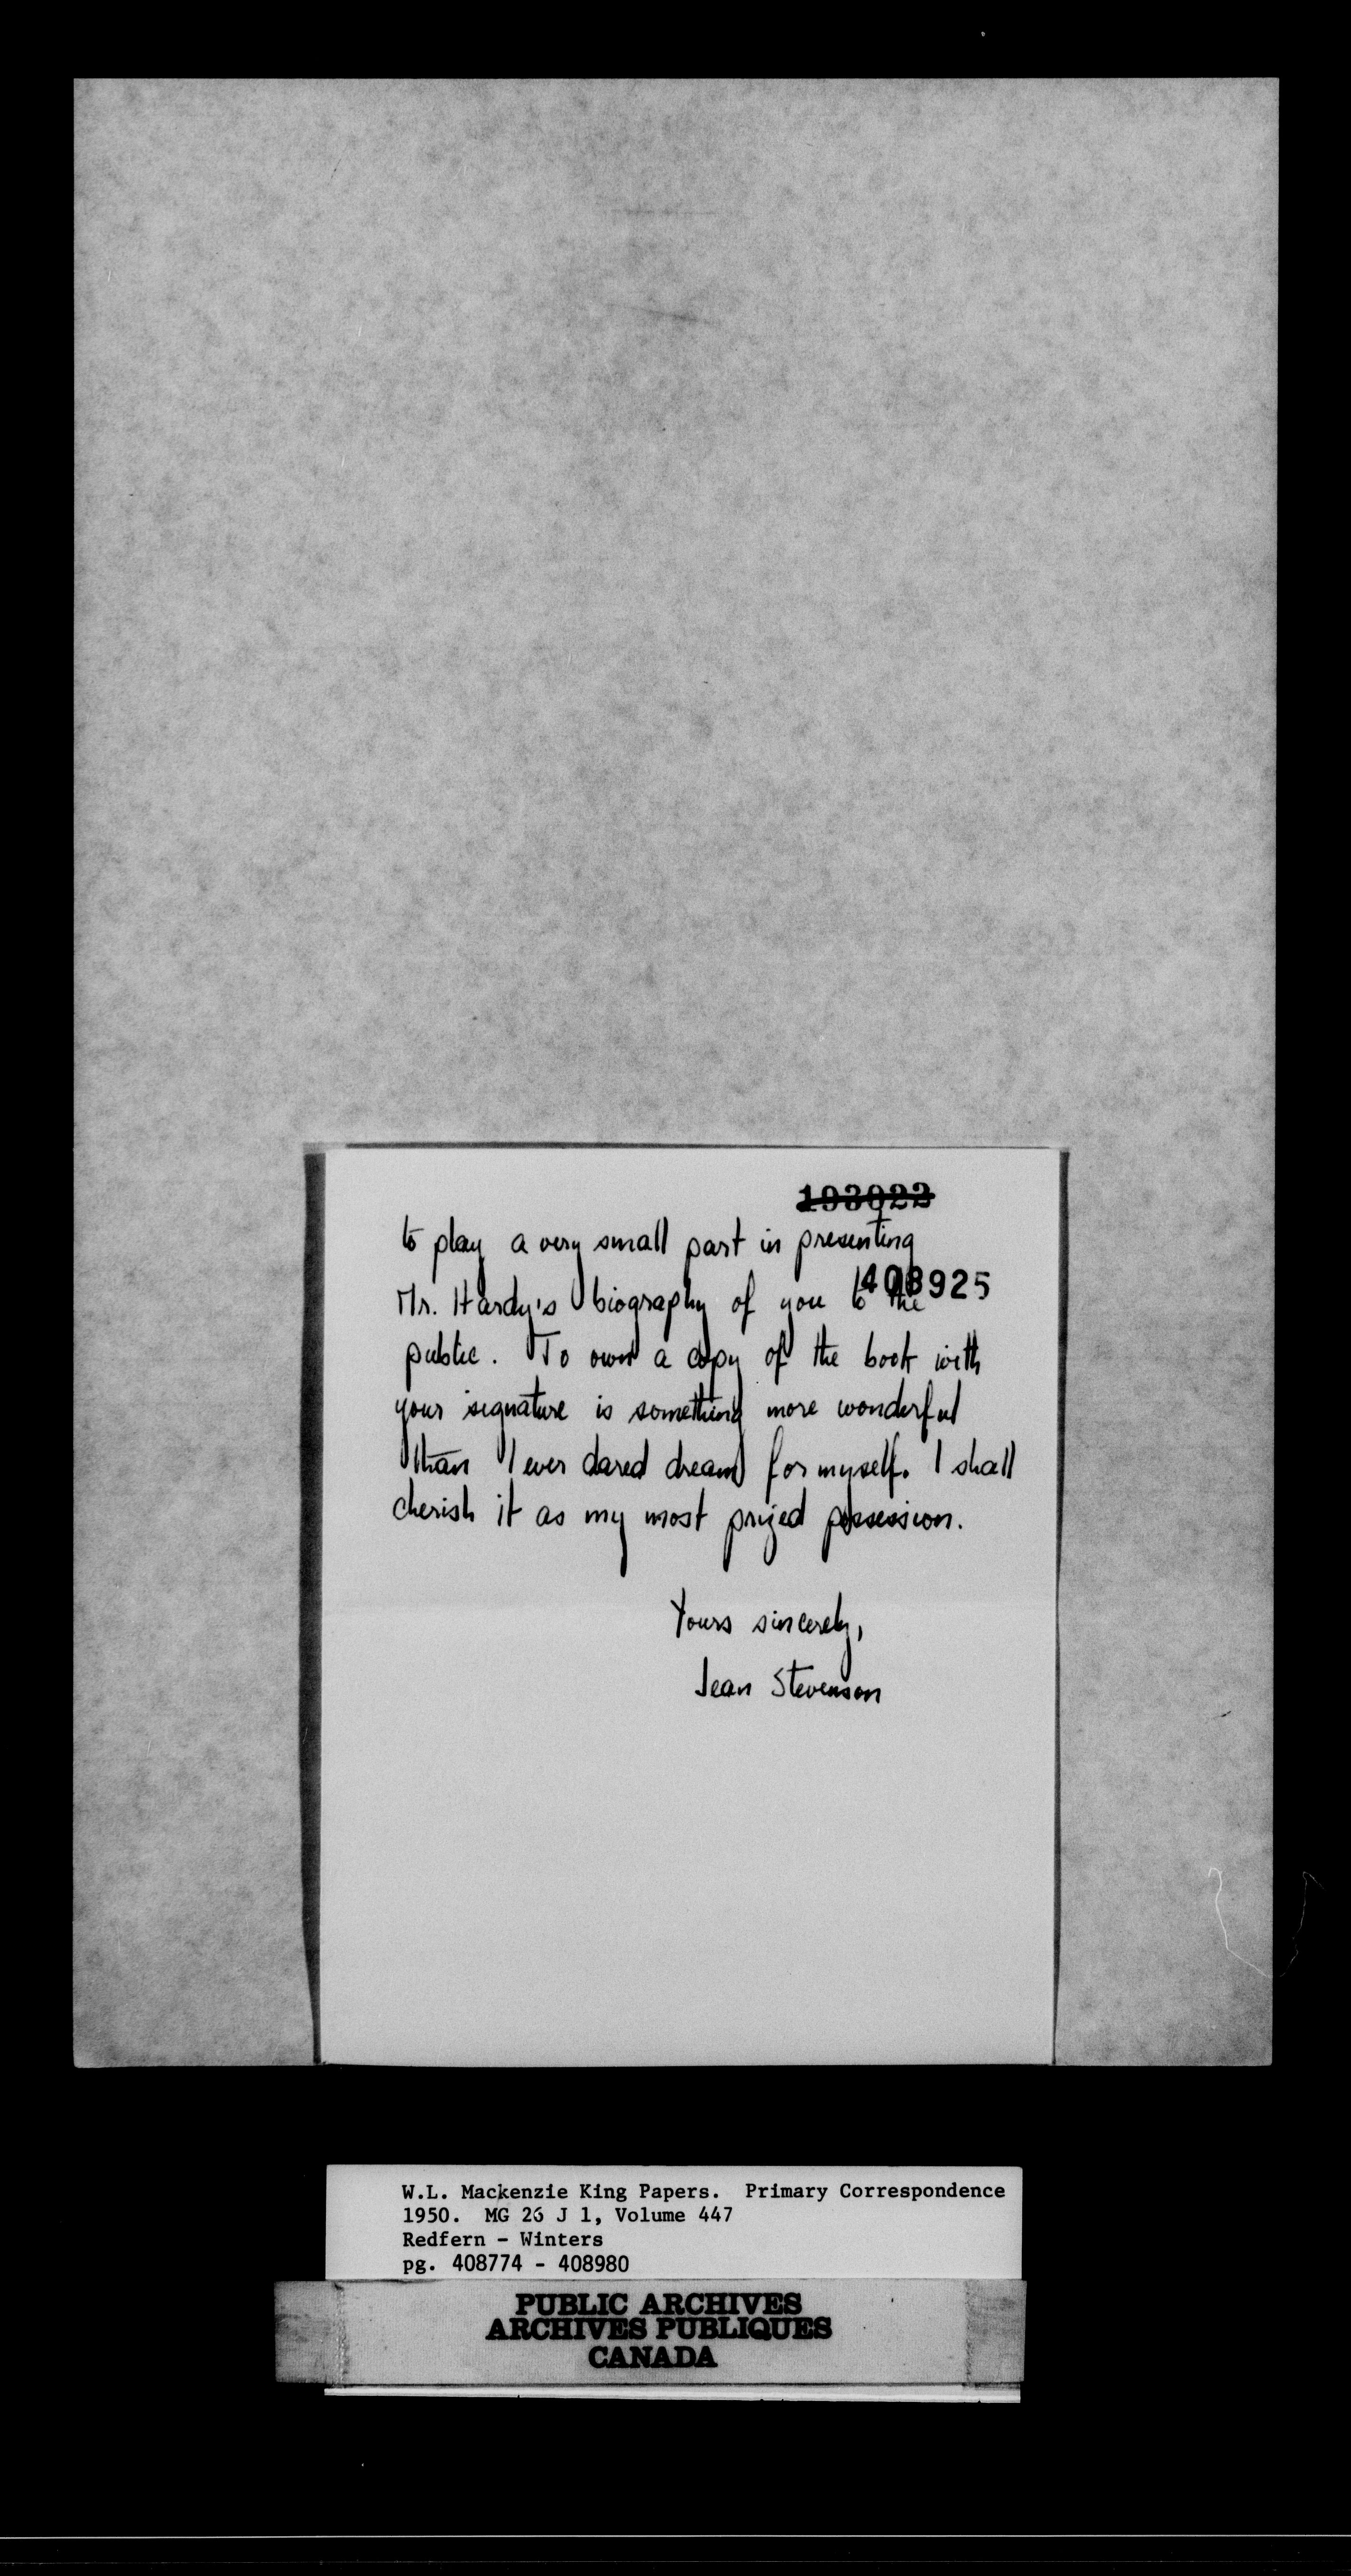 193022
to play a very small part in presenting
408925
Mr. Hardy's biography of you to the
public. To own a copy of the book with
your signature is something more wonderful
than I ever dared dream for myself. I shall
cherish it as my most prized possession.
Yours sincerely,
Jean Stevenson
W.L. Mackenzie King Papers. Primary Correspondence
1950. MG 26 J 1, Volume 447
Redfern - Winters
pg. 408774 - 408980
PUBLIC ARCHIVES
ARCHIVES PUBLIQUES
CANADA